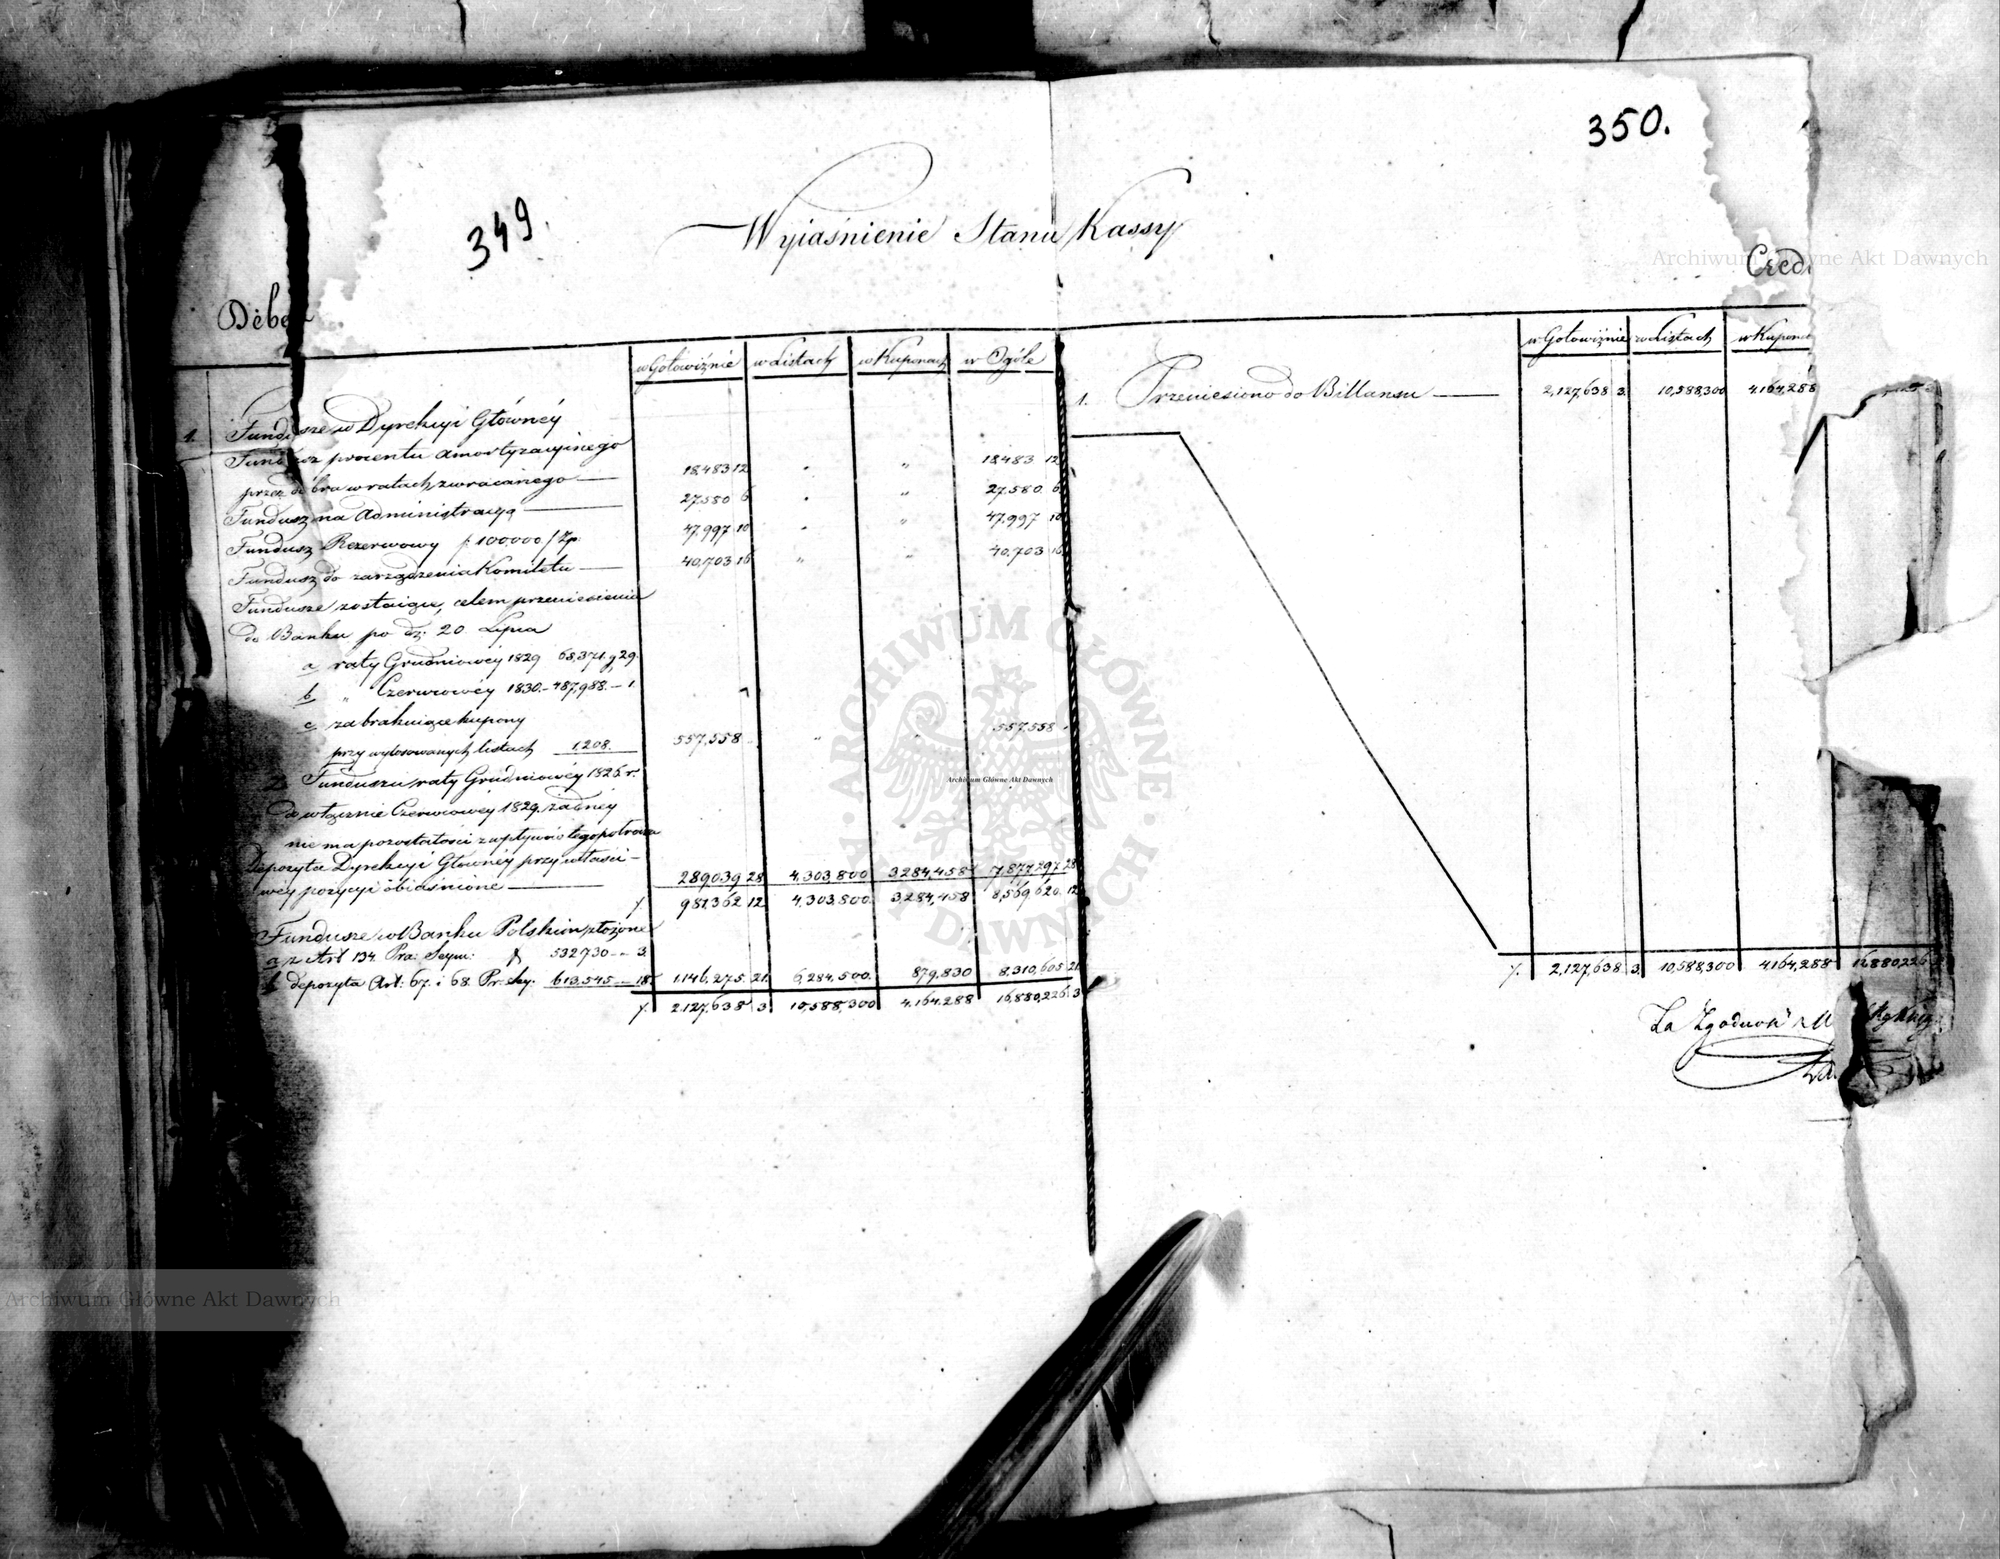 349.
350.
Wyiaśnienie Stanu Kassy
Debe
Credi
w Gotowiźnie w Listach w Kuponach w Ogóle
1. Fundusze w Dyrekcyi Główney
Fundusz procentu amortyzacyinego
przez dobra w ratach zwracanego 18,483 12 " " 18,483 12
Fundusz na Administracyą 27,580 6 " " 27,580 6
Fundusz Rezerwowy f. 100,000 / Zp. 47,997 10 " " 47,997 10
Fundusz do zarządzenia Komitetu 40,703 16 " " 40,703 16
Fundusze zostaiące, celem przeniesienia
do Banku po dz: 20 Lipca
a raty Grudniowéy 1829 68,371. g 29.
b " Czerwcowéy 1830.– 487,988.– 1.
c zabrakuiące kupony
przy wylosowanych listach 1,208. 557,558 " " 557,558
Z Funduszu raty Grudniowéy 1826 r.
do włącznie Czerwcowey 1829. żadnéy
nie ma pozostałości z wpływów tego
Depozyta Dyrekcyi Główney przy właści-
wéy pozycyi obiaśnione 289,039 28 4,303,800 3,284,458 7,877,297 28
981,362 12 4,303,800 3,284,458 8,569,620 12
Fundusze w Banku Polskim złożone
a z Art 134. Pra: Seym: f 532,730 – 3.
b depozyta Art: 67. i 68. Pr. 613,545 – 18. 1,146,275. 21. 6,284,500. 879,830 8,310,605 21
2,127,638 3 10,588,300 4,164,288 16,880,226 3
w Gotowiźnie w Listach w Kupona
1. Przeniesiono do Billansu 2,127,638 3. 10,588,300 4,164,288
2,127,638 3. 10,588,300 4,164,288 16,880,226
Za Zgodność z
Archiwum Główne Akt Dawnych
ARCHIWUM GŁÓWNE AKT DAWNYCH
Archiwum Główne Akt Dawnych
Archiwum Główne Akt Dawnych